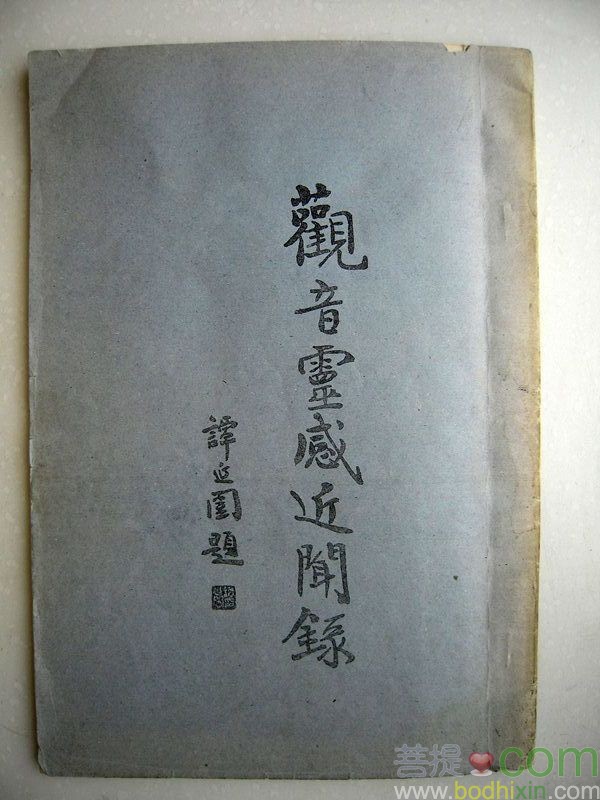 觀音靈感近聞錄
譚延闓題
菩提 com
www.bodhixin.com